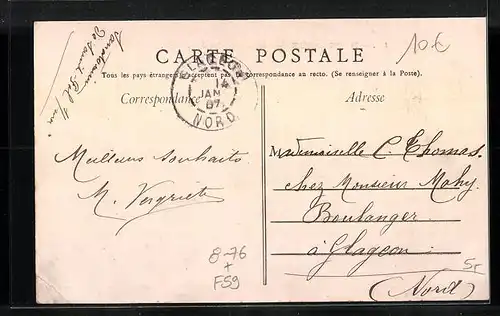 CARTE POSTALE
Tous les pays étrangers n'acceptent pas la correspondance au recto. (Se renseigner à la Poste).
Correspondance
Adresse
10€
GLAGEON
14
JAN
07
NORD
Meilleurs souhaits
M. Vergriete
Mademoiselle C Thomas
chez Monsieur Mahy
Boulanger
à Glageon
(Nord)
8-76
+
F59